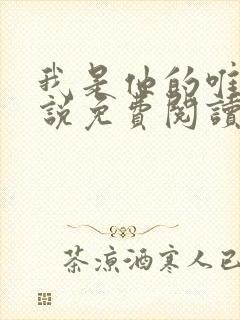 我是他的唯
說免費閱讀
茶涼酒寒人已